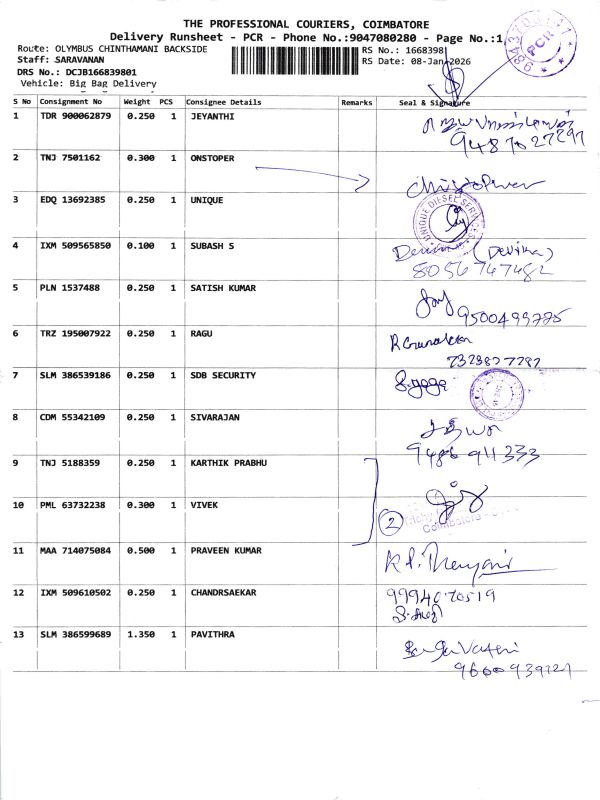 THE PROFESSIONAL COURIERS, COIMBATORE
Delivery Runsheet - PCR - Phone No.:9047080280 - Page No.:1
Route: OLYMBUS CHINTHAMANI BACKSIDE
RS No.: 1668398
Staff: SARAVANAN
RS Date: 08-Jan-2026
DRS No.: DCJB166839801
Vehicle: Big Bag Delivery
PCR
S No Consignment No Weight PCS Consignee Details Remarks Seal & Signature
1 TDR 900062879 0.250 1 JEYANTHI
9487027297
2 TNJ 7501162 0.300 1 ONSTOPER
Christopher
3 EDQ 13692385 0.250 1 UNIQUE
UNIQUE DIESEL SERVICES
4 IXM 509565850 0.100 1 SUBASH S
(Devika)
8056747482
5 PLN 1537488 0.250 1 SATISH KUMAR
9500499775
6 TRZ 195007922 0.250 1 RAGU
7 SLM 386539186 0.250 1 SDB SECURITY
8 CDM 55342109 0.250 1 SIVARAJAN
9486911333
9 TNJ 5188359 0.250 1 KARTHIK PRABHU
10 PML 63732238 0.300 1 VIVEK
2
Coimbatore
11 MAA 714075084 0.500 1 PRAVEEN KUMAR
12 IXM 509610502 0.250 1 CHANDRSAEKAR
9994070519
13 SLM 386599689 1.350 1 PAVITHRA